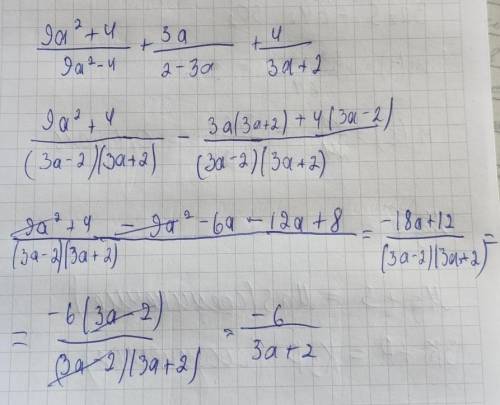 (9a² + 4)/(9a² - 4) + 3a/(2 - 3a) + 4/(3a + 2)
(9a² + 4)/((3a - 2)(3a + 2)) - (3a(3a + 2) + 4(3a - 2))/((3a - 2)(3a + 2))
(9a² + 4 - 9a² - 6a - 12a + 8)/((3a - 2)(3a + 2)) = (-18a + 12)/((3a - 2)(3a + 2)) =
= (-6(3a - 2))/((3a - 2)(3a + 2)) = (-6)/(3a + 2)